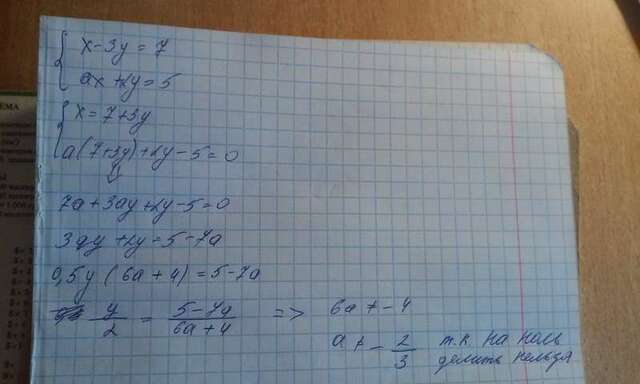 x - 3y = 7
ax + 2y = 5
x = 7 + 3y
a(7+3y) + 2y - 5 = 0
7a + 3ay + 2y - 5 = 0
3ay + 2y = 5 - 7a
0,5y (6a + 4) = 5 - 7a
y/2 = 5-7a/6a+4 => 6a ≠ -4
a ≠ - 2/3 т.к на ноль
делить нельзя